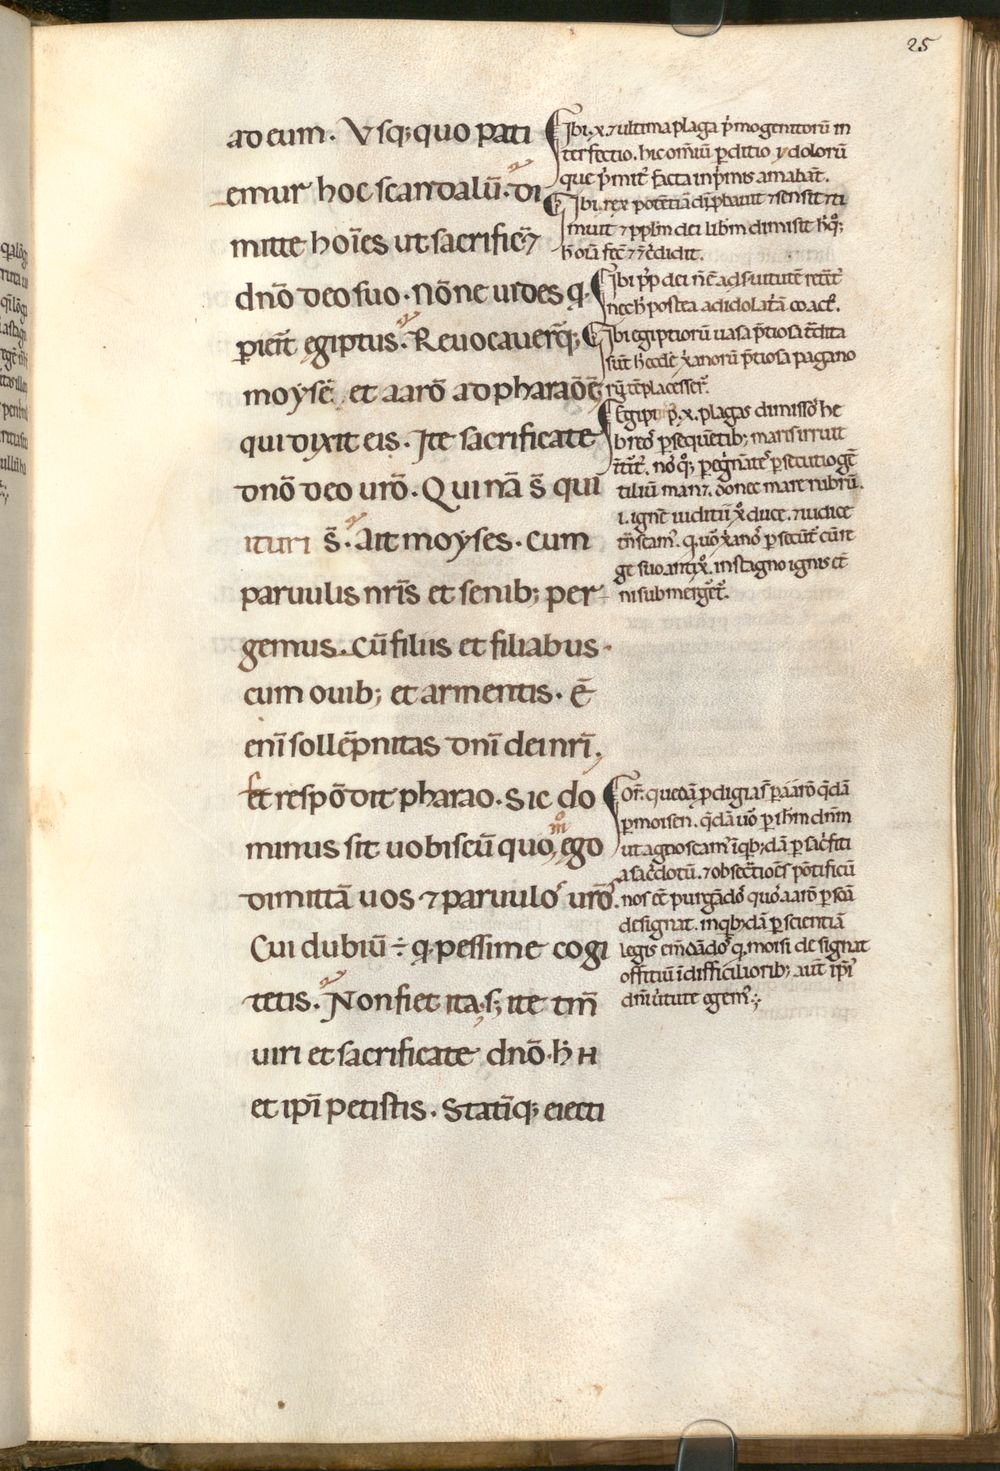 25
ad eum. Vsq;quo pati
emur hoc scandalū. di
mitte hoīes ut sacrificēt
dnō deo suo. nōne uides q̄
periēt egiptus. Reuocauer̄q;
moysē et aarō ad pharaōē
qui dixit eis. Ite sacrificate
dnō deo ur̄o. Qui nā s̄ qui
ituri s̄. Ait moyses. cum
paruulis nr̄is et senib; per
gemus. cū filiis et filiabus.
cum ouib; et armentis. ē
eni̅ sollēpnitas dnī dei nrī.
Et respōdit pharao. sic do
minus sit uobiscū quo m̊ ego
dimittā uos ⁊ paruulos uros.
Cui dubiū ÷ q̄ pessime cogi
tetis. Non fiet ita s; ite tm̄
uiri et sacrificate dnō. h̄ н
et ipī petistis. Statīq; eiecti
Ibi .x. ⁊ ultima plaga p̄mogenitorū in
terfectio. hic omīū pditio ⁊ dolorū
que p̄mit̄ facta inp̄mis amabāt.
Ibi rex potentiā dī pbauit ⁊ sensit ⁊ ti
muit ⁊ pplm dei libm dimisit
Ibi pp̄ dei
nec h̄ postea ad idolat̄ā coact̄.
Ibi egiptiorū uasa p̄tiosa
sūt h̄ eccłe xanorū p̄tiosa pagano
rū tēpla cesser̄.
Egiptii p̄ .x. plagas dimissos he
breos p̄sequētib; maris irruit
p̄secutio gē
tiliū man⁊. donec mare rubrū.
.i. ignē iuditiū x̄o duce. ⁊ iudice
p̄secut̄ cū re
ge suo antix̄o. in stagno ignis et̄
ni submerget̄.
Or̄. quedā pdigia s̄ p aarō q̄dā
p moisen. q̄dā uo p ihm dnm
ut agnoscam̄ īqb;dā p sac̄fiti
a sac̄dotū. ⁊ obsec̄tioēs pōtificū
nos ēē purgādos quos aarō psoā
designat. inqb;dā p scientiā
legis em̄dādos q̄ moisi designat
offitiū ī difficiliorib; aut̄ ipī
dnī ūtute egem̄.